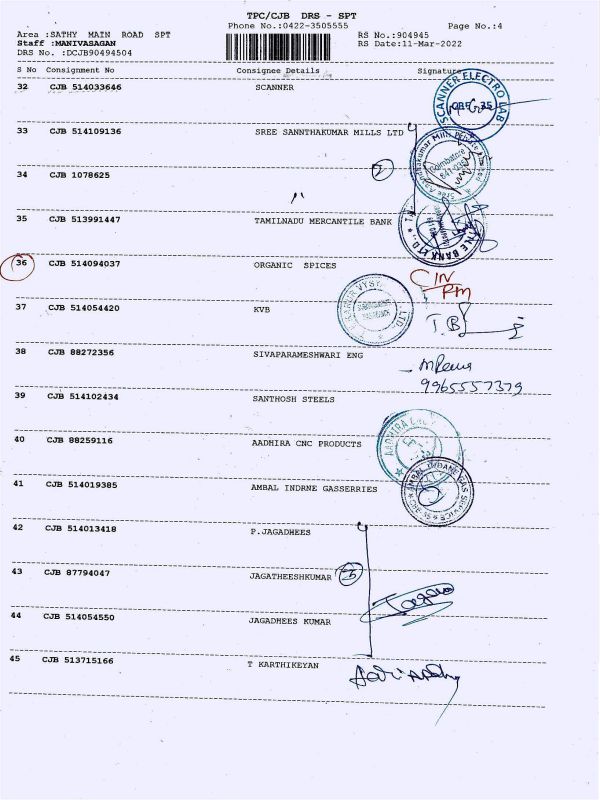 TPC/CJB DRS - SPT
Phone No.:0422-3505555 Page No.:4
Area :SATHY MAIN ROAD SPT RS No.:904945
Staff :MANIVASAGAN RS Date:11-Mar-2022
DRS No. :DCJB90494504
S No Consignment No Consignee Details Signature
32 CJB 514033646 SCANNER
SCANNER ELECTRO LAB
33 CJB 514109136 SREE SANNTHAKUMAR MILLS LTD
Coimbatore
34 CJB 1078625
35 CJB 513991447 TAMILNADU MERCANTILE BANK
TILE BANK LTD.
36 CJB 514094037 ORGANIC SPICES
37 CJB 514054420 KVB
T.B
38 CJB 88272356 SIVAPARAMESHWARI ENG
9965557379
39 CJB 514102434 SANTHOSH STEELS
40 CJB 88259116 AADHIRA CNC PRODUCTS
AADHIRA
41 CJB 514019385 AMBAL INDRNE GASSERRIES
42 CJB 514013418 P.JAGADHEES
43 CJB 87794047 JAGATHEESHKUMAR 3
44 CJB 514054550 JAGADHEES KUMAR
45 CJB 513715166 T KARTHIKEYAN